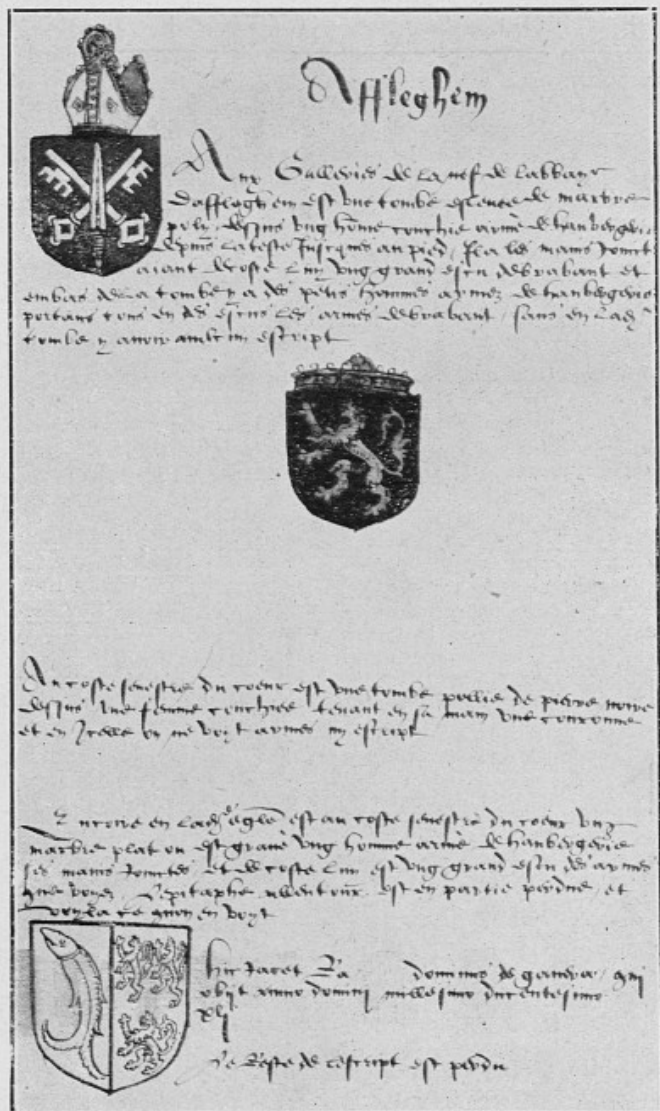 Affleghem
Aux Galleries de la nef de labbaye
daffleghem est vne tombe esleuee de marbre
poly, dessus vng home couchie arme de haubergerie
depuis la teste Jusques au pied, Il a les mains Joinct
aiant decoste luy vng grand escu de brabant et
embas de la tombe y a des petis hommes armez de haubergerie
portans tous en des escus les armes de brabant, sans en lad
tombe y auoir aulcun escript
Au coste senestre du coeur est vne tombe pollie de pierre noire
dessus vne femme couchiee tenant en sa main vne couronne
et en Icelle on ne voyt armes ny escript
Encoire en lad eglē est au coste senestre du coeur vng
marbre plat ou est graué vng homme armé de haubergerie
les mains Joinctes et decoste luy est vng grand escu des armes
que voyez, Lepitaphe allentour est en partie perdue, et
voyla ce quon en voyt
hic Jacet Ra dominus de gauera, qui
obijt anno domini millesimo ducentesimo
xlj
Le Reste de lescript est perdu